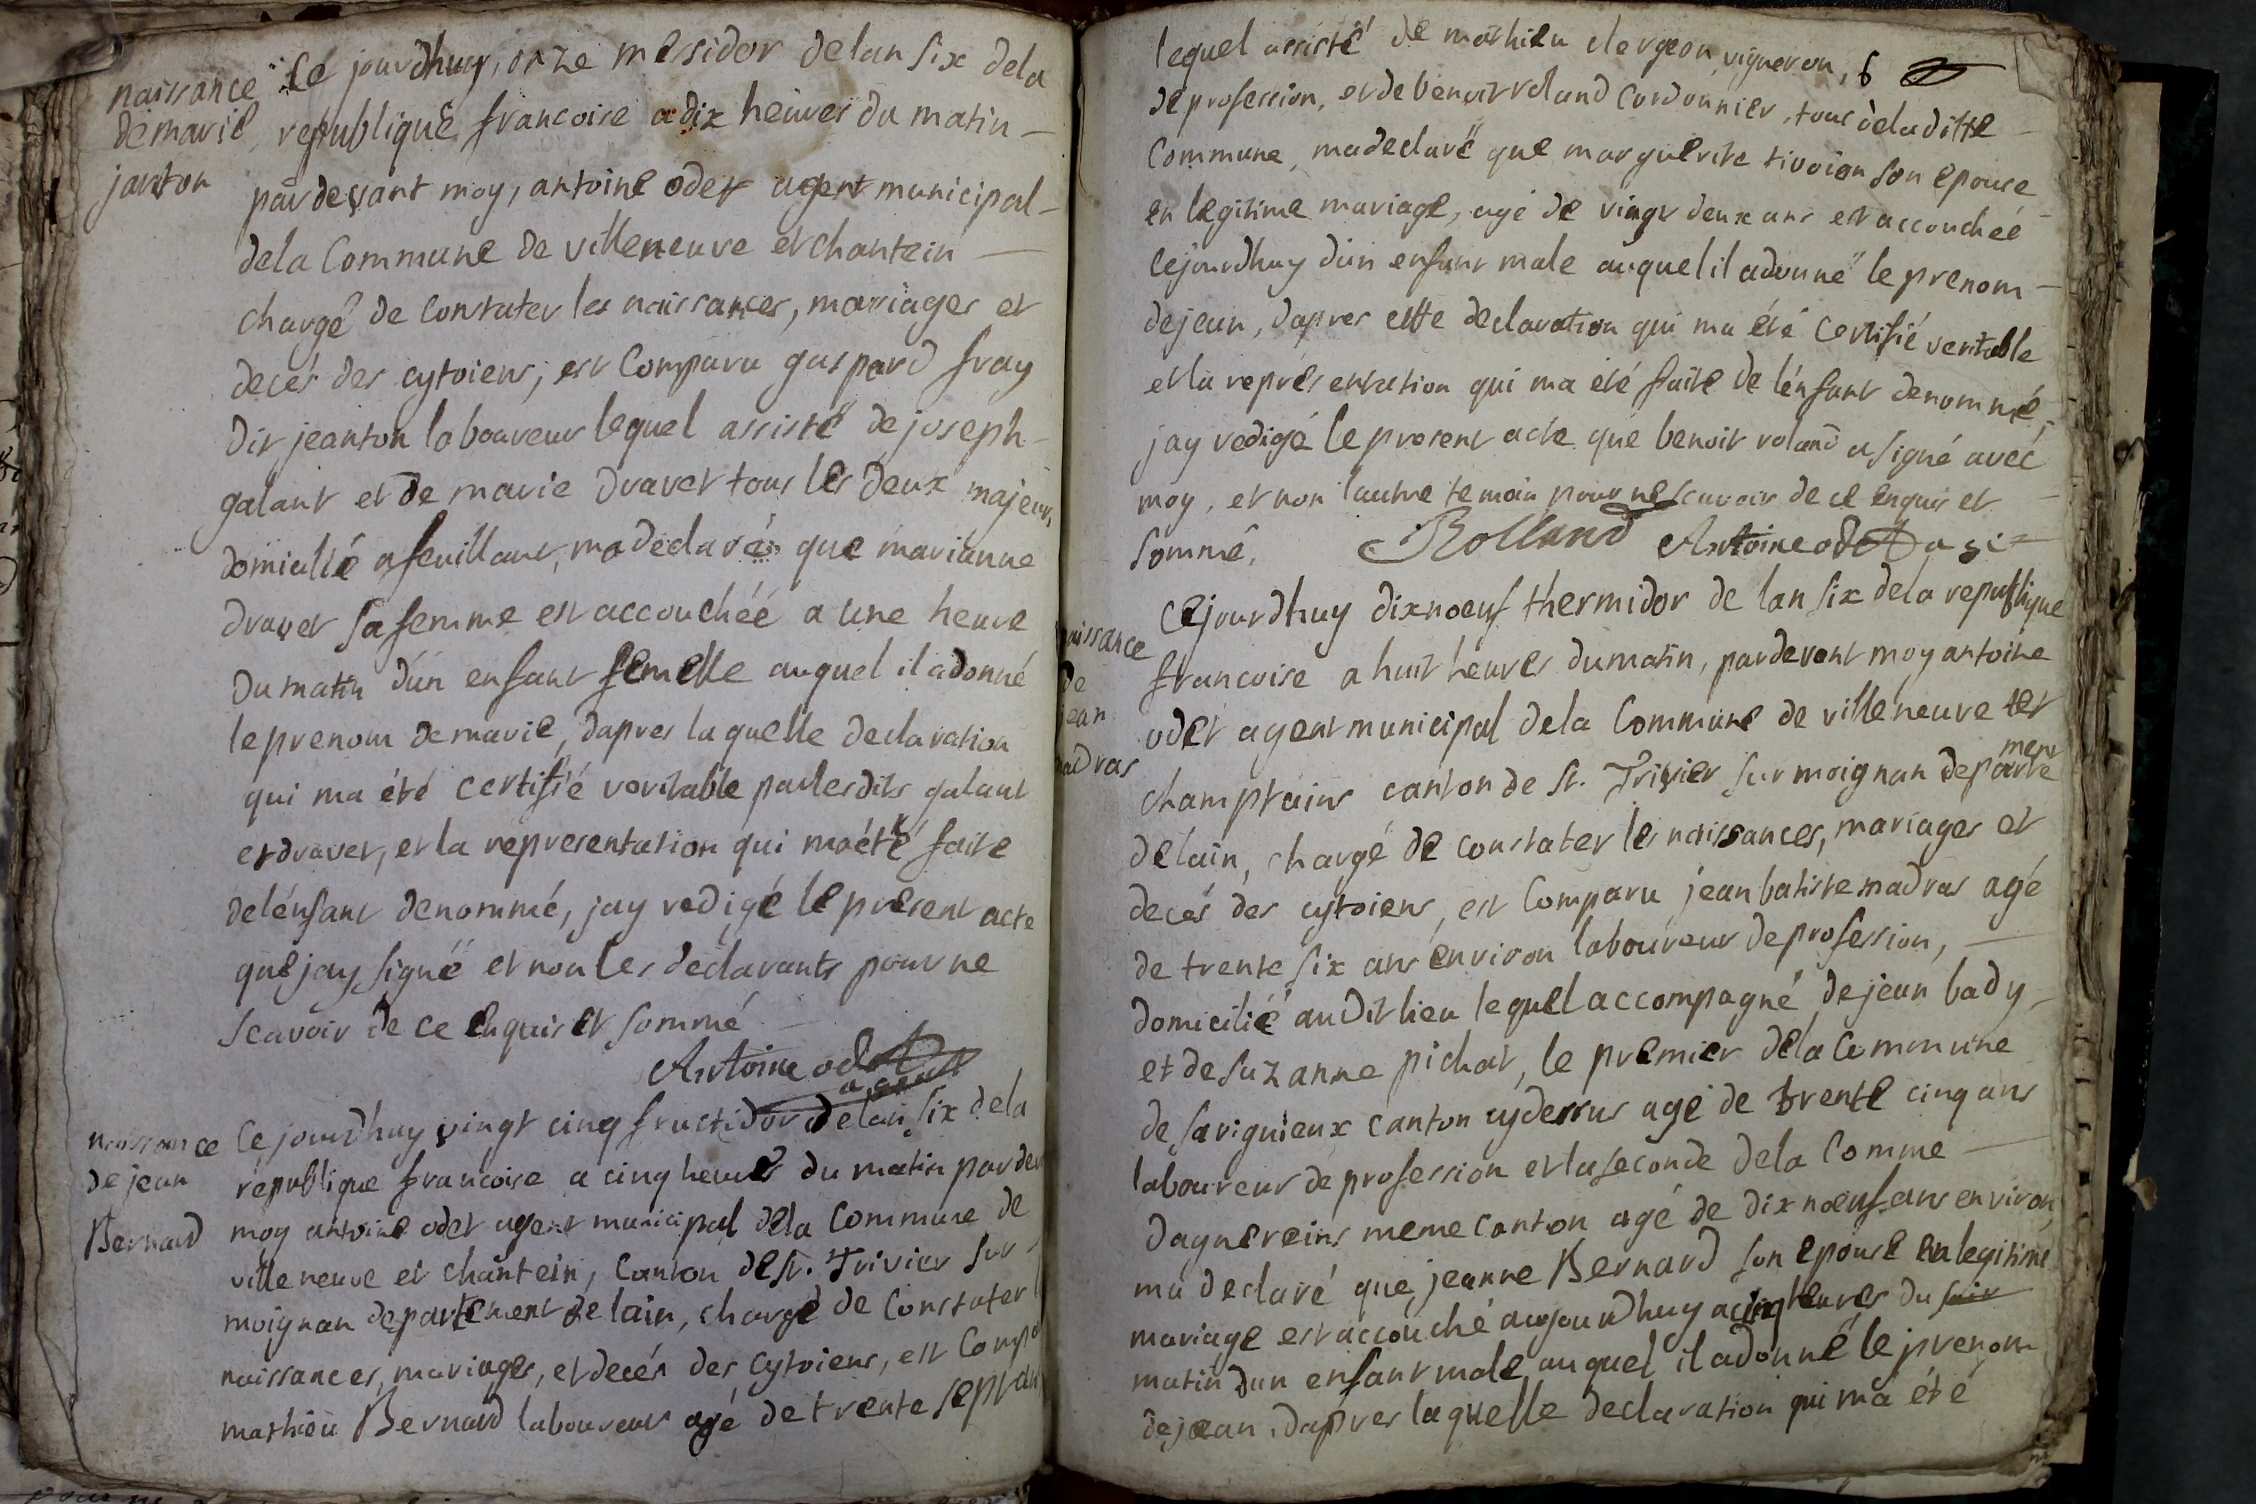 naissance
de marie
janton
Ce jourdhuy, onze messidor delan six dela
republique francoise a dix heures du matin
pardevant moy, antoine odet agent municipal
dela Commune de villeneuve et chantein
chargé de Constater les naissances, mariages et
decés des cytoiens, est Comparu gaspard fray
dit jeanton laboureur lequel assisté de joseph
galant et de marie Dravet tous les deux majeurs
domicilié a feuillant, ma declaré que marianne
dravet sa femme est accouchéé a une heure
du matin d'un enfant femelle auquel il adonné
le prenom demarie, dapres laquelle declaration
qui ma été certifié veritable parlesdits galant
et dravet, et la representation qui ma été faite
delénfant denommé, jay redigé le present acte
que jay signé et non les declarants pour ne
scavoir de ce enquis et sommé
Antoine odet
agent
naissance
de jean
Bernard
Ce jourdhuy vingt cinq fructidor delan six dela
republique francoise a cinq heures du matin pardev
moy antoine odet agent municipal dela Commune de
ville neuve et chantein, Canton de st. Trivier sur
moignan departement de lain, chargé de Constater l
naissances, mariages, et decés des Cytoiens, est Compa
mathieu Bernard laboureur agé de trente sept an
lequel assisté de mathieu clergeon vigneron, 6
de profession, et de benoit roland Cordonnier, tous de la ditte
Commune, madeclaré que marguerite tivoion son epouse
en legitime mariage, agé de vingt deux ans est accouchéé
Cejourdhuy d'un enfant male auquel il adonné le prenom
dejean, dapres cette declaration qui ma été certifié veritable
et la représentation qui ma été faite de lénfant denommé,
jay redigé le present acte que benoit roland a signé avéc
moy, et non lautre temoin pour ne scavoir de ce enquis et
sommé. Rolland Antoine odet a gt
naissance
de
jean
madras
Cejourdhuy dixnoeuf thermidor de lan six dela republique
francoise a huit heures dumatin, pardevant moy antoine
odet agent municipal dela Commune de villeneuve et
champtains canton de st. Trivier sur moignan departement
delain, chargé de constater les naissances, mariages et
decés des cytoiens, est Comparu jeanbatiste madras agé
de trente six ans environ laboureur deprofession,
domicilié audit lieu lequel accompagné dejean bady
et desuzanne pichat, le premier dela Commune
de savignieux canton cydessus agé de trente cinq ans
laboureur de profession et laseconde dela Comme
dagnereins meme Canton agé de dix noeuf ans environ,
ma declaré que, jeanne Bernard son epouse en legitime
mariage est accouché aujourdhuy acinq heures du soir
matin dun enfant male auquel il adonné le prenom
dejean. dapres laquelle declaration qui ma été